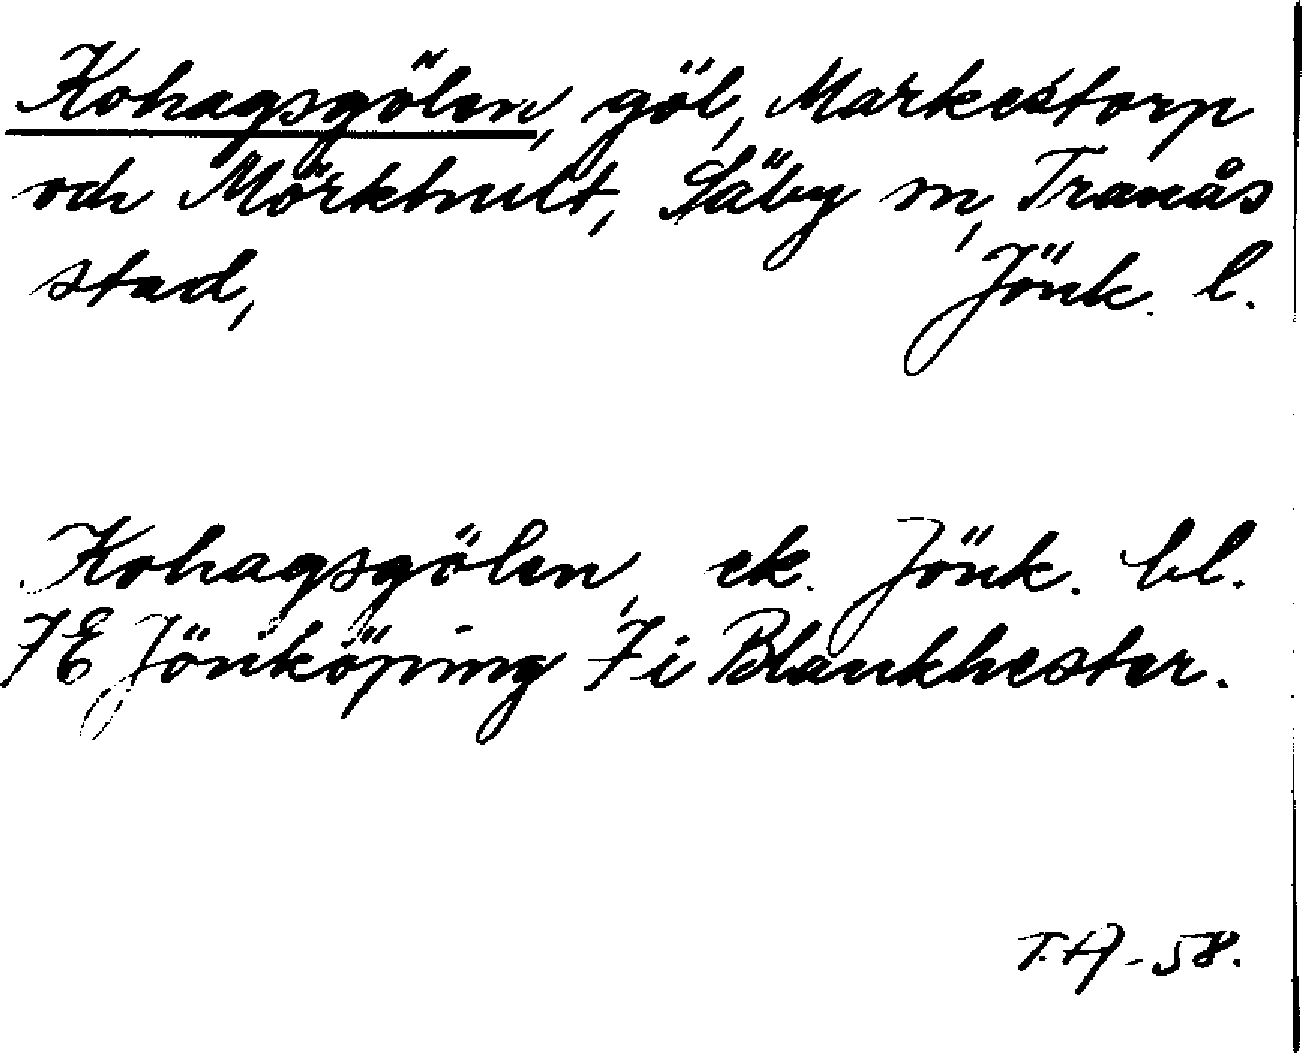 Kohagsgölen, göl, Markestorp
och Mörkhult, Säby sn, Tranås
stad, Jönk. l.
Kohagsgölen, ek. Jönk. bl.
7E Jönköping 7i Blankhester.
T.A-58.